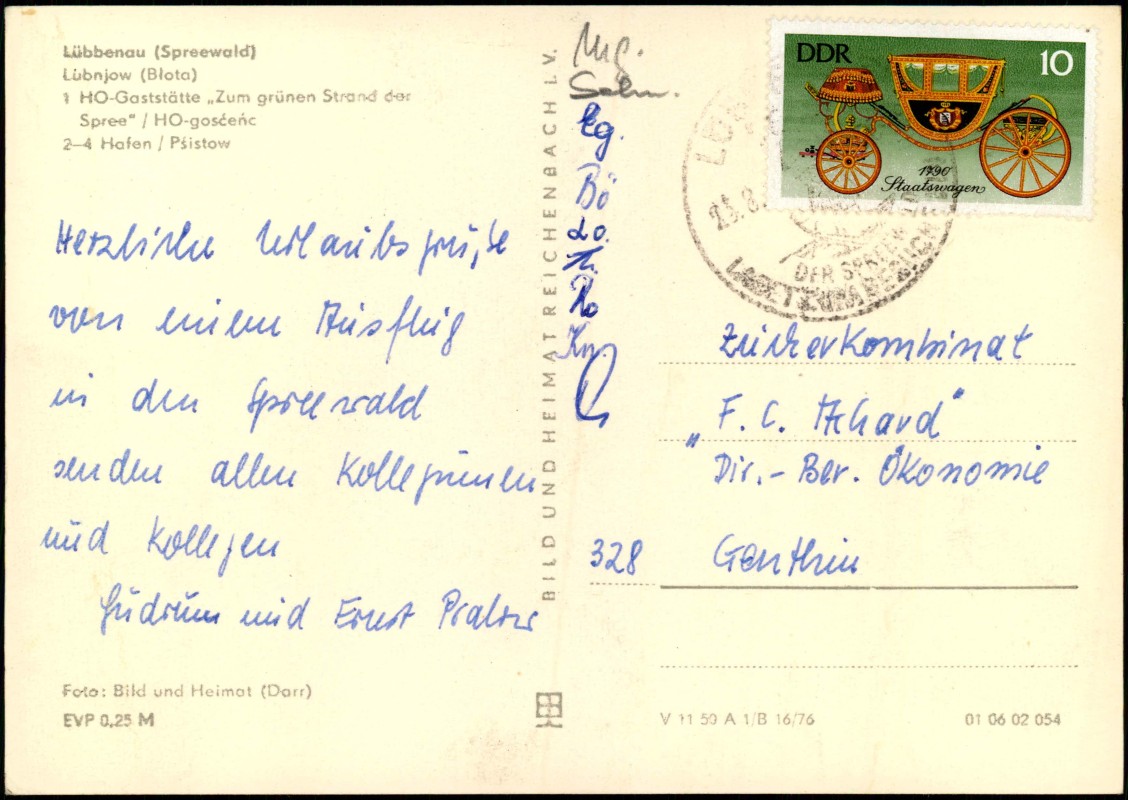 Lübbenau (Spreewald)
Lubnjow (Błota)
1 HO-Gaststätte „Zum grünen Strand der
Spree" / HO-gosćeńc
2–4 Hafen / Pśistow
Herzliche Urlaubsgrüße
von einem Ausflug
in den Spreewald
senden allen Kolleginnen
und Kollegen
Gudrun und Ernst
Foto: Bild und Heimat (Darr)
EVP 0,25 M
BILD UND HEIMAT REICHENBACH I. V.
Mg.
Eg.
Bö
Lo.
Ro
DDR
10
1790
Staatswagen
DER SPREEW
Zuckerkombinat
„F. C. Achard"
Dir.-Ber. Ökonomie
328 Genthin
V 11 50 A 1/B 16/76
01 06 02 054